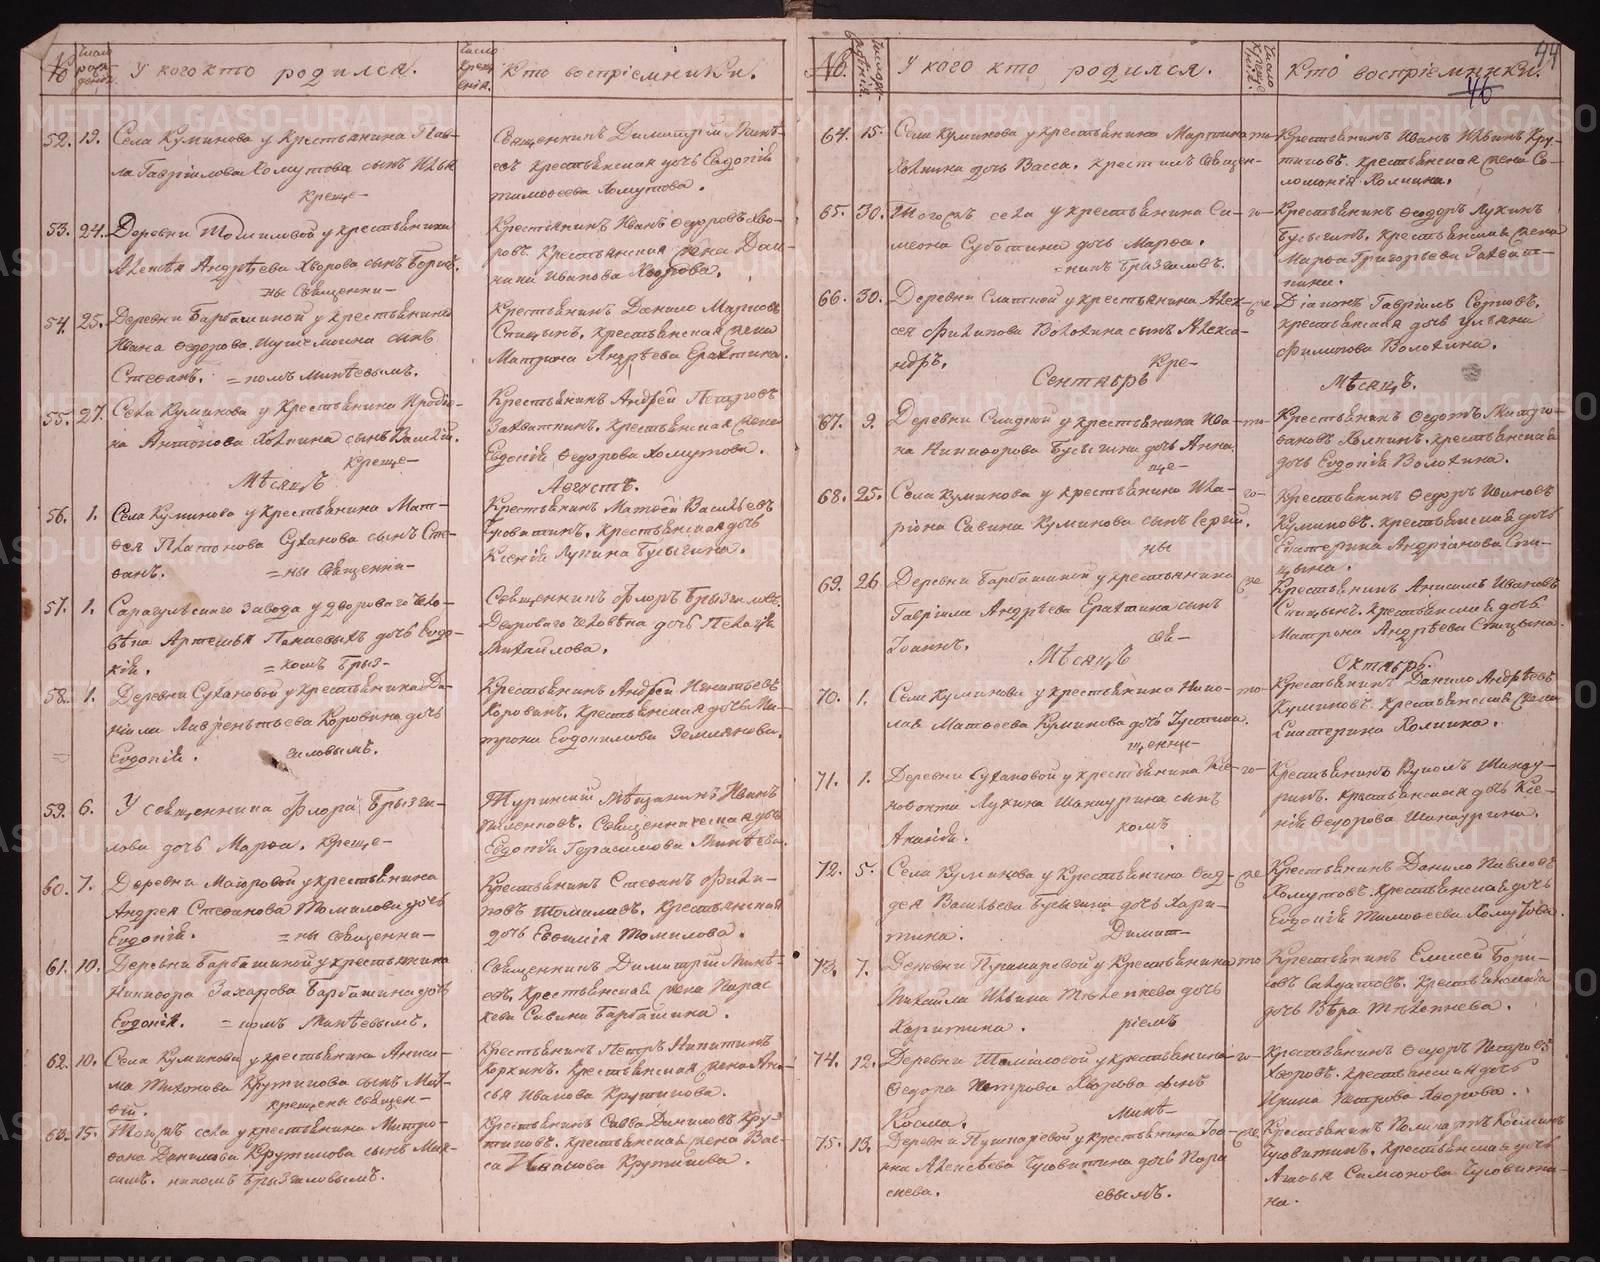 №
Число рождения.
У кого кто родился.
Число крещения.
Кто восприемники.
52. 19. Села Куминова у крестьянина Пав-
ла Гаврилова Хомутова сынъ Илья
креще-
Священникъ Димитрій Минѣ-
евъ крестьянская дочь Евдокія
Тимофеева Хомутова.
53. 24. Деревни Томиловой у крестьянина
Алексѣя Андрѣева Хворова сынъ Борисъ.
=ны Священни-
Крестьянинъ Иванъ Ѳедоровъ Хво-
ровъ. Крестьянская жена
Иванова Хворова.
54. 25. Деревни Барбашиной у крестьянина
Ивана Ѳедорова сынъ
Стефанъ. =комъ Минѣевымъ.
Крестьянинъ Данило Марковъ
Спицынъ. крестьянская жена
Матрона Андрѣева Ераткина.
55. 27. Села Куминова у крестьянина
Антонова Холкина сынъ Василій.
Креще-
Крестьянинъ Андрей Петровъ
Захваткинъ. крестьянская жена
Евдокія Ѳедорова Хомутова.
Мѣсяцъ
Августъ.
56. 1. Села Куминова у крестьянина Мат-
ѳея Платонова Суханова сынъ Сте-
фанъ. =ны Священни-
Крестьянинъ Матѳей Васильевъ
крестьянская дочь
Ксенія Лукина Бусыгина.
57. 1. завода у двороваго чело-
вѣка Артемья дочь Евдо-
кія. =комъ Брыз-
Священникъ Флоръ Брызгаловъ.
Двороваго человѣка дочь Пелагія
Михайлова.
58. 1. Деревни Сухановой у крестьянина Да-
ніила Лаврентьева Коровина дочь
Евдокія. галовымъ.
Крестьянинъ Андрей Игнатьевъ
Коровинъ. крестьянская дочь Ма-
трона Евдокимова Землянова.
59. 6. У священника Флора Брызга-
лова дочь Марѳа. креще-
Туринскій мѣщанинъ Иванъ
Священническая дочь
Евдокія Герасимова Минѣева.
60. 7. Деревни Маюровой у крестьянина
Андрея Стефанова Томилова дочь
Евдокія. =ны священни-
Крестьянинъ Стефанъ Фили-
повъ Томиловъ. крестьянская
дочь Евфимія Томилова.
61. 10. Деревни Барбашиной у крестьянина
Никифора Захарова Барбашина дочь
Евдокія. =комъ Минѣевымъ.
Священникъ Димитрій Минѣ-
евъ. Крестьянская жена Парас
кева Савина Барбашина.
62. 10. Села Куминова у крестьянина Аниси-
ма Тихонова Крутикова сынъ Мат-
ѳій. крещены священ-
Крестьянинъ Петръ Никитинъ
крестьянская жена Ани-
сья Иванова Крутикова.
63. 15. Тогожъ села у крестьянина Митро-
фана Данилова Крутикова сынъ Мак-
симъ. никомъ Брызгаловымъ.
Крестьянинъ Савва Даниловъ Кру-
тиковъ. крестьянская жена Вас-
са Иванова Крутикова.
44
46
№.
Число рожденія.
У кого кто родился.
Число крещенія.
Кто восприемники.
64. 15. Села Куминова у крестьянина Мартина то-
Холкина дочь Васса. крестилъ священ-
Крестьянинъ Иванъ Ильинъ Кру-
тиковъ. крестьянская жена Со-
ломонія Холкина.
65. 30. Тогожъ села у крестьянина Си- го-
меона Суботина дочь Марѳа.
=никъ Брызгаловъ.
Крестьянинъ Ѳеодоръ Лукинъ
Бусыгинъ. крестьянская жена
Марѳа Григорьева Захват-
кина.
66. 30. Деревни Слаткой у крестьянина Алек- же
сея Филипова Волокина сынъ Алекса-
ндръ. Кре-
Діаконъ Гавріилъ Серговъ.
крестьянская дочь Ульяна
Филипова Волокина.
Сентябрь
Мѣсяцъ.
67. 9. Деревни Сладкой у крестьянина Ива- то-
на Никифорова Бусыгина дочь Анна.
ще-
Крестьянинъ Ѳедотъ Митро-
фановъ Холкинъ. крестьянская
дочь Евдокія Волокина.
68. 25. Села Куминова у крестьянина Ила- го-
ріона Савина Куминова сынъ Сергій.
ны
Крестьянинъ Ѳедоръ Ивановъ
Куминовъ. крестьянская дочь
Екатерина Андріанова Спи-
цына.
69. 26 Деревни Барбашиной у крестьянина же
Гавріила Андрѣева Ераткина сынъ
Іоаннъ. свя-
Крестьянинъ Анисимъ Ивановъ
Спицынъ. крестьянская дочь
Матрона Андрѣева Спицына.
Мѣсяцъ
Октябрь.
70. 1. Села Куминова у крестьянина Нико- то
лая Матѳеева Куминова дочь Іустина.
щенни-
Крестьянинъ Данило Андрѣевъ
Куминовъ. крестьянская жена
Екатерина Холкина.
71. 1. Деревни Сухановой у крестьянина го-
Лукина Шандурина сынъ
Ананія. комъ
Крестьянинъ Вуколъ Шанду-
ринъ. крестьянская дочь Ксе-
нія Ѳедорова Шандурина.
72. 5. Села Куминова у крестьянина Ѳад- же
дея Васильева Бусыгина дочь Хари-
тина. Димит-
Крестьянинъ Данило Павловъ
Хомутовъ. крестьянская дочь
Евдокія Тимофеева Хомутова.
73. 7. Деревни Пушкаревой у крестьянина то
Михайла Ильина Тюленева дочь
Харитина. ріемъ
Крестьянинъ Елисей Бори-
совъ крестьянская
дочь Вѣра
74. 12. Деревни Томиловой у крестьянина го-
Ѳедора Петрова Хворова сынъ
Косма. Минѣ-
Крестьянинъ Ѳедоръ Петровъ
Хворовъ. крестьянская дочь
Ирина Петрова Хворова.
75. 13. Деревни Пушкаревой у крестьянина Іоа- же
нна Алексѣева Чусовитина дочь Пара
скева. евымъ.
Крестьянинъ Поликарпъ Косминъ
Чусовитинъ. крестьянская дочь
Агафья Симонова Чусовити-
на.
METRIKI.GASO-URAL.RU